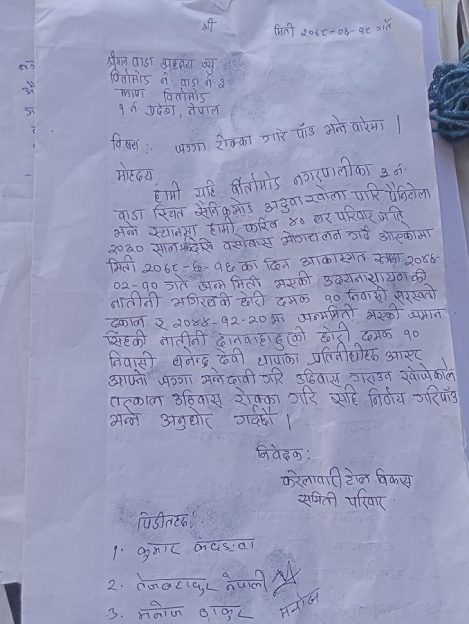 श्री
मिती २०८९-०६-१८ गते
श्रीमान वाडा अध्यक्ष ज्यु
विर्तामोड न. वाडा नं २
झापा विर्तामोड
१ नं. प्रदेश, नेपाल
विषय: जग्गा रोक्का गरि पाँउ भन्ने बारेमा ।
मोहदय
हामी यहि विर्तामोड नगरपालीका ३ नं.
वाडा स्थित सैनिकमोड अदुवाखोला पारि पानिटोला
भन्ने स्थानमा हामी करिब ४० घर परिवार मिति
२०३० साल देखि बसोबास भोगचलन गर्दै आएकोमा
मिती २०८९-६-१६ का दिन आकास्मत रुपमा २०४६-
०२-१० गते जन्म मिती भएकी उदयनारायणकी
नातीनी भगिरथके छोरी दमक १० निवासी सरस्वती
ढकाल र २०४४-१२-२० मा जन्ममिती भएकी जमान
सिंहकी नातीनी दानबहादुरको छोरी दमक १०
निवासी धनेन्द्र देवी थापाका प्रतिनीधीहरु आएर
आफ्नो जग्गा भन्ने दावी गरि उठिवास गराउन खोजेकोले
तत्काल उठिवास रोक्का गरि सहि निर्णय गरिपाँउ
भन्ने अनुरोध गर्दछौ ।
निवेदक:
करेलाबारी टोल विकास
समिती परिवार
पिडीतहरु:
१. कुमार
२. तेजबहादुर नेपाली
३. मनोज ठाकुर मनोज